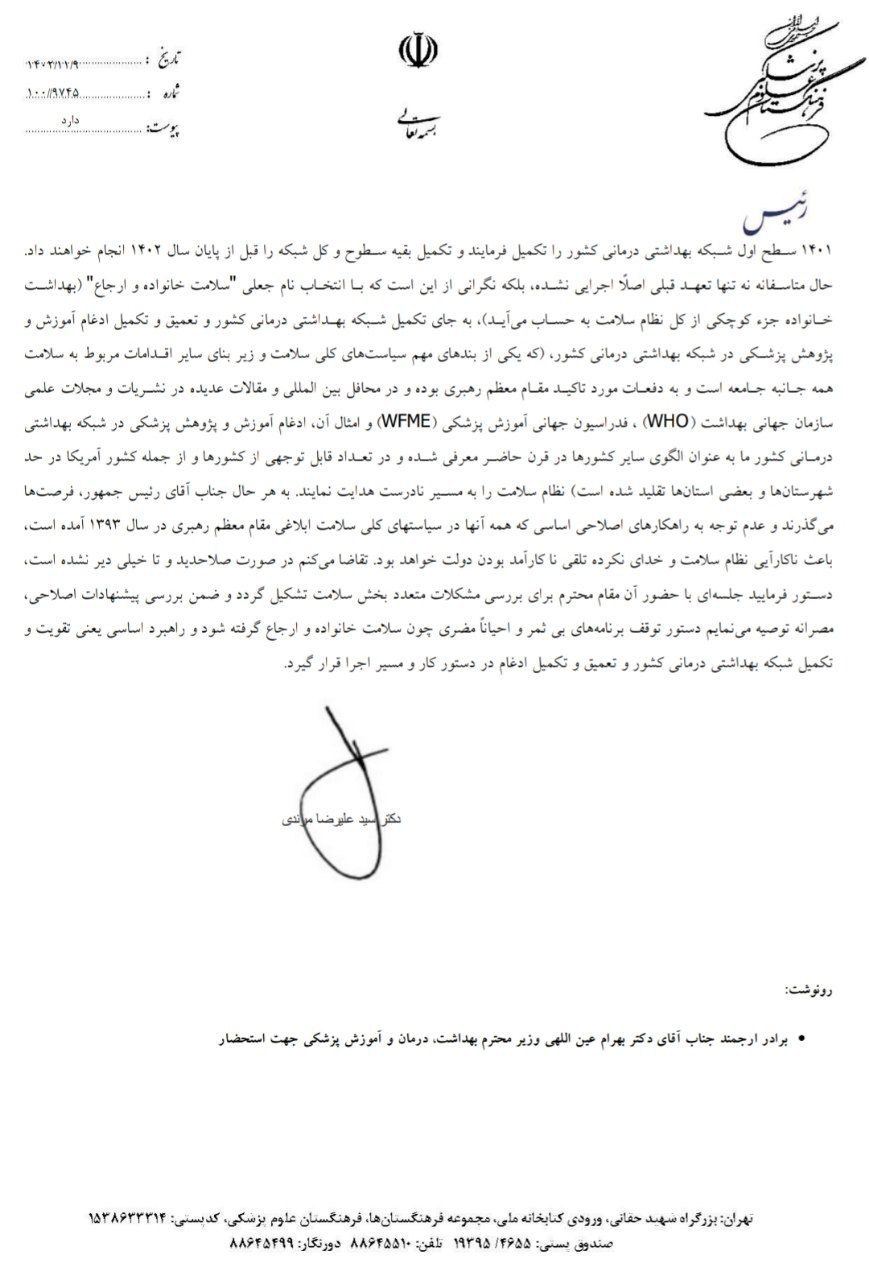 جمهوری اسلامی ایران
فرهنگستان علوم پزشکی
بسمه تعالی
تاریخ : ۱۴۰۲/۱۱/۹
شماره : ۱۰۰/۹۷۴۵
پیوست: دارد
رئیس
۱۴۰۱ سطح اول شبکه بهداشتی درمانی کشور را تکمیل فرمایند و تکمیل بقیه سطوح و کل شبکه را قبل از پایان سال ۱۴۰۲ انجام خواهند داد.
حال متاسفانه نه تنها تعهد قبلی اصلًا اجرایی نشده، بلکه نگرانی از این است که با انتخاب نام جعلی "سلامت خانواده و ارجاع" (بهداشت
خانواده جزء کوچکی از کل نظام سلامت به حساب می‌آید)، به جای تکمیل شبکه بهداشتی درمانی کشور و تعمیق و تکمیل ادغام آموزش و
پژوهش پزشکی در شبکه بهداشتی درمانی کشور، (که یکی از بندهای مهم سیاست‌های کلی سلامت و زیر بنای سایر اقدامات مربوط به سلامت
همه جانبه جامعه است و به دفعات مورد تاکید مقام معظم رهبری بوده و در محافل بین المللی و مقالات عدیده در نشریات و مجلات علمی
سازمان جهانی بهداشت (WHO) ، فدراسیون جهانی آموزش پزشکی (WFME) و امثال آن، ادغام آموزش و پژوهش پزشکی در شبکه بهداشتی
درمانی کشور ما به عنوان الگوی سایر کشورها در قرن حاضر معرفی شده و در تعداد قابل توجهی از کشورها و از جمله کشور آمریکا در حد
شهرستان‌ها و بعضی استان‌ها تقلید شده است) نظام سلامت را به مسیر نادرست هدایت نمایند. به هر حال جناب آقای رئیس جمهور، فرصت‌ها
می‌گذرند و عدم توجه به راهکارهای اصلاحی اساسی که همه آنها در سیاستهای کلی سلامت ابلاغی مقام معظم رهبری در سال ۱۳۹۳ آمده است،
باعث ناکارآیی نظام سلامت و خدای نکرده تلقی نا کارآمد بودن دولت خواهد بود. تقاضا می‌کنم در صورت صلاحدید و تا خیلی دیر نشده است،
دستور فرمایید جلسه‌ای با حضور آن مقام محترم برای بررسی مشکلات متعدد بخش سلامت تشکیل گردد و ضمن بررسی پیشنهادات اصلاحی،
مصرانه توصیه می‌نمایم دستور توقف برنامه‌های بی ثمر و احیاناً مضری چون سلامت خانواده و ارجاع گرفته شود و راهبرد اساسی یعنی تقویت و
تکمیل شبکه بهداشتی درمانی کشور و تعمیق و تکمیل ادغام در دستور کار و مسیر اجرا قرار گیرد.
دکتر سید علیرضا مرندی
رونوشت:
• برادر ارجمند جناب آقای دکتر بهرام عین اللهی وزیر محترم بهداشت، درمان و آموزش پزشکی جهت استحضار
تهران: بزرگراه شهید حقانی، ورودی کتابخانه ملی، مجموعه فرهنگستان‌ها، فرهنگستان علوم پزشکی، کدپستی: ۱۵۳۸۶۳۳۳۱۴
صندوق پستی: ۴۶۵۵/ ۱۹۳۹۵ تلفن: ۸۸۶۴۵۵۱۰ دورنگار: ۸۸۶۴۵۴۹۹